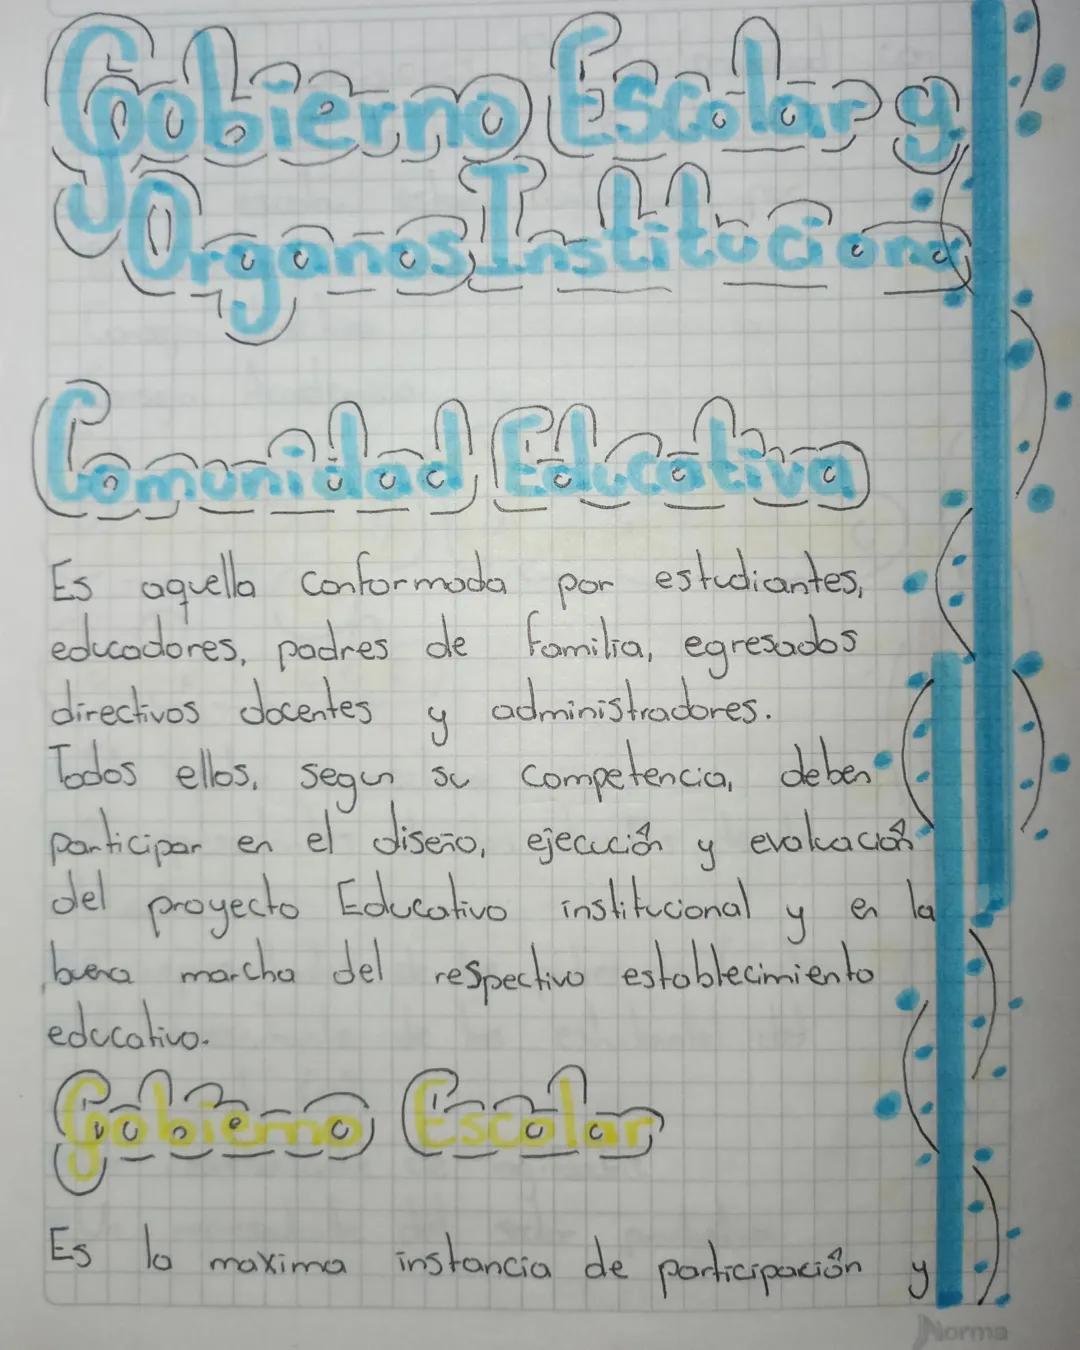 Gobierno Escolar y
Organos Instituciona
Comunidad Educativa
Es aquella conformada por estudiantes,
educadores, padres de familia, egresados
directivos docentes y administradores.
Todos ellos, segun su competencia, deben
participar en el diseño, ejecución y evaluación
del proyecto Educativo institucional y en la
buena marcha del respectivo establecimiento
educativo.
Gobierno Escolar
Es la maxima instancia de participación y
Norma